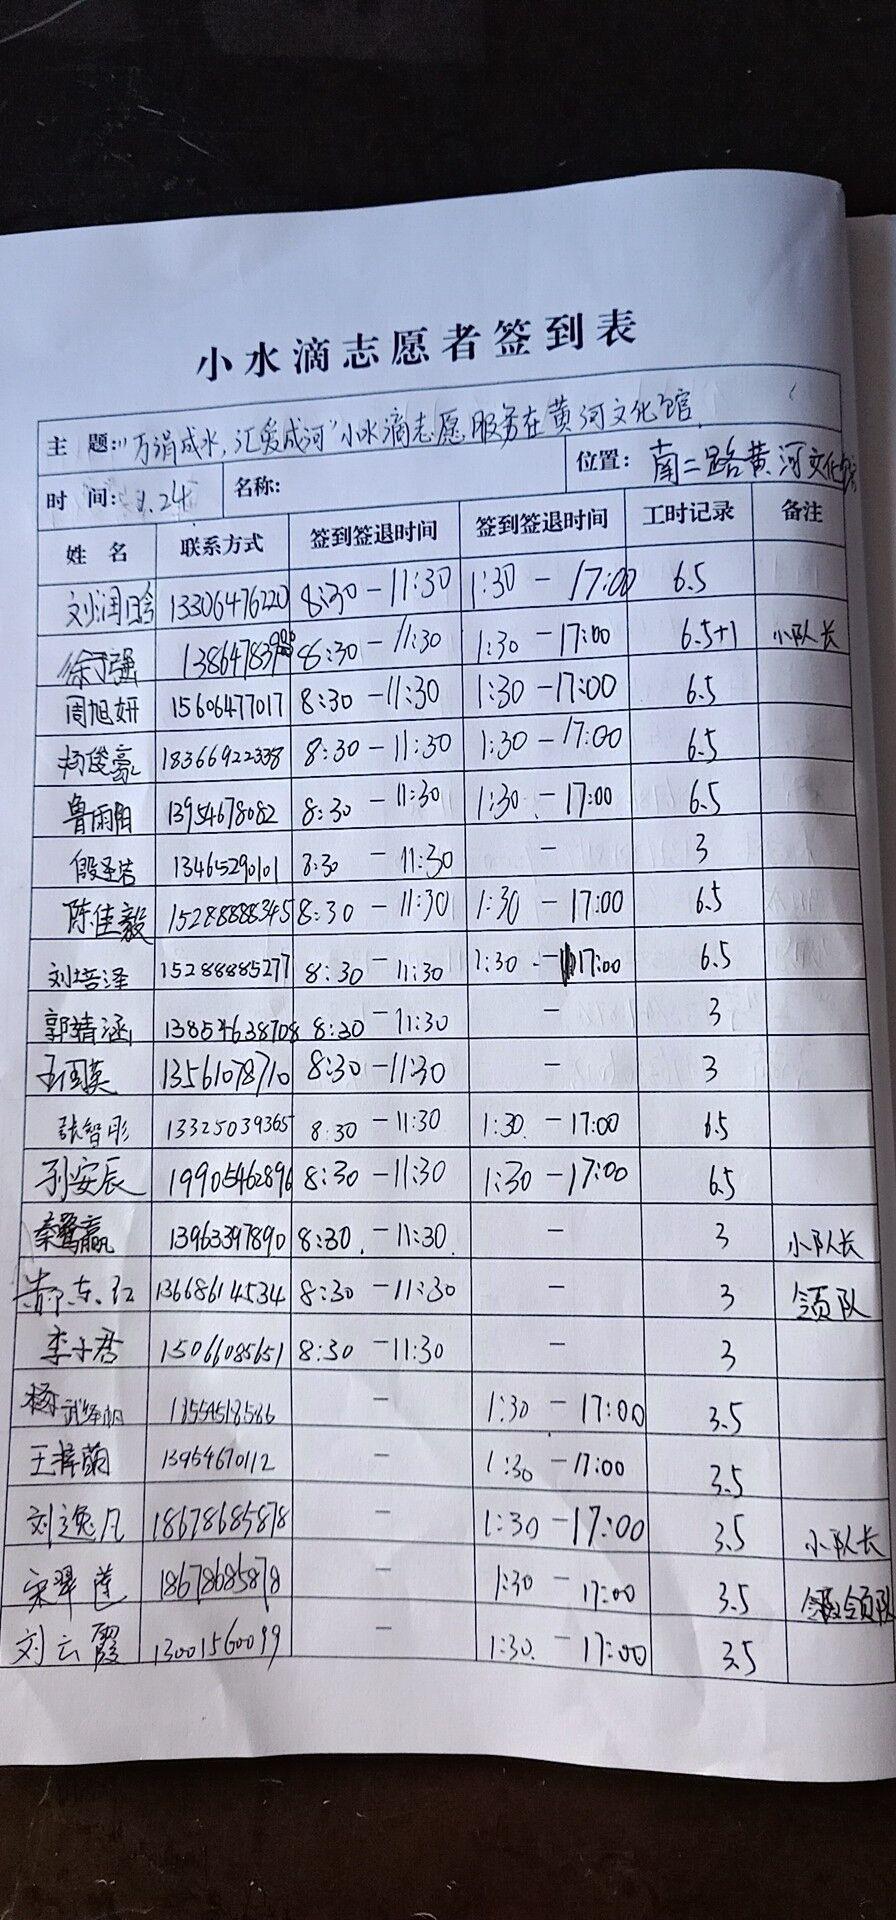 小水滴志愿者签到表
主 题: "万涓成水,汇爱成河"小水滴志愿服务在黄河文化馆
时 间: 2.24 名称: 位置: 南二路黄河文化馆
姓 名 联系方式 签到签退时间 签到签退时间 工时记录 备注
刘润晗 13306476220 8:30-11:30 1:30-17:00 6.5
徐强 8:30-11:30 1:30-17:00 6.5+1 小队长
周旭妍 15606477017 8:30-11:30 1:30-17:00 6.5
杨俊豪 18366922338 8:30-11:30 1:30-17:00 6.5
鲁雨阳 13954678082 8:30-11:30 1:30-17:00 6.5
13465290101 8:30-11:30 - 3
陈佳毅 15288888345 8:30-11:30 1:30-17:00 6.5
刘培泽 15288885277 8:30-11:30 1:30-17:00 6.5
郭靖涵 13854638708 8:30-11:30 - 3
13561078710 8:30-11:30 - 3
张智彤 13325039365 8:30-11:30 1:30-17:00 6.5
孙安辰 19905462896 8:30-11:30 1:30-17:00 6.5
秦鹭赢 13963397890 8:30-11:30 - 3 小队长
13668614534 8:30-11:30 - 3 领队
李小君 15066085651 8:30-11:30 - 3
杨 - 1:30-17:00 3.5
王梓菡 13954670112 - 1:30-17:00 3.5
刘逸凡 18678685878 - 1:30-17:00 3.5 小队长
宋翠莲 18678685878 - 1:30-17:00 3.5 领队
刘云霞 13001560099 - 1:30-17:00 3.5